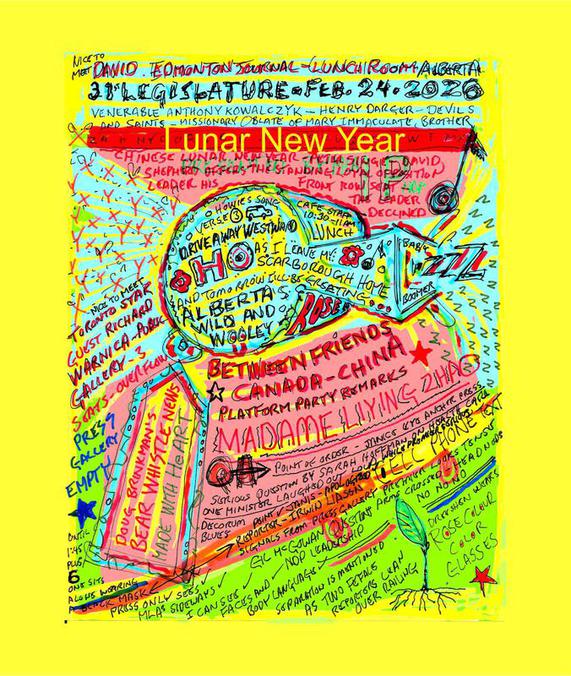 NICE TO
MEET DAVID. EDMONTON JOURNAL - LUNCH ROOM/ALBERTA
31st LEGISLATURE • FEB. 24. 2026
VENERABLE ANTHONY KOWALCZYK - HENRY DARGER - DEVILS
AND SAINTS - MISSIONARY OBLATE OF MARY IMMACULATE, BROTHER
unar New Year
CHINESE LUNAR NEW YEAR - PETER SINGER DAVID
SHEPHERD OFFERS THE STANDING OF OPPOSITION
LEADER HIS FRONT ROW SEAT
THE LEADER
DECLINED
HOWIE'S SONG
VERSE 3
CAFE STAR
10:30-11AM
LUNCH
DRIVE AWAY WESTWARD
HO
AS I LEAVE ME
SCARBOROUGH HOME
AND TOMORROW I'LL BE GREETING
ALBERTA'S
WILD AND
WOOLEY
ROSES
BABY
BOOMER
NICE TO MEET
TORONTO STAR
GUEST RICHARD
WARNICA - PUBLIC
GALLERY - 3
SEATS - OVERFLOW
PRESS
GALLERY
EMPTY
UNTIL
1:45
PLUS
6
ONE SITS
ALONE WEARING
A BLACK MASK
BETWEEN FRIENDS
CANADA - CHINA
PLATFORM PARTY REMARKS
MADAME LIYING ZHAO
DOUG BRINKMAN'S
BEAR WHISTLE NEWS
MADE WITH HeART
POINT OF ORDER - JANIS
QUESTION BY SARAH HOFFMAN
ONE MINISTER LAUGHED OUT LOUD
WHILE PREMIER
CELL PHONE TEXT
DECORUM POINT JANIS - APOLOGIZED
BLUES
REPORTER - IRWIN
SIGNALS FROM PRESS GALLERY PREMIER LOOKS TENSE
ARMS CROSSED HEAD NODS
NO NO NO
DREESHEN WEARS
ROSE COLOUR
COLOR
GLASSES
GIL McGOWAN
NDP LEADERSHIP
PRESS ONLY SEES
MLAs SIDEWAYS
I CAN SEE
FACES AND
BODY LANGUAGE
SEPARATION IS MENTIONED
AS TWO FEMALE
REPORTERS LEAN
OVER RAILING